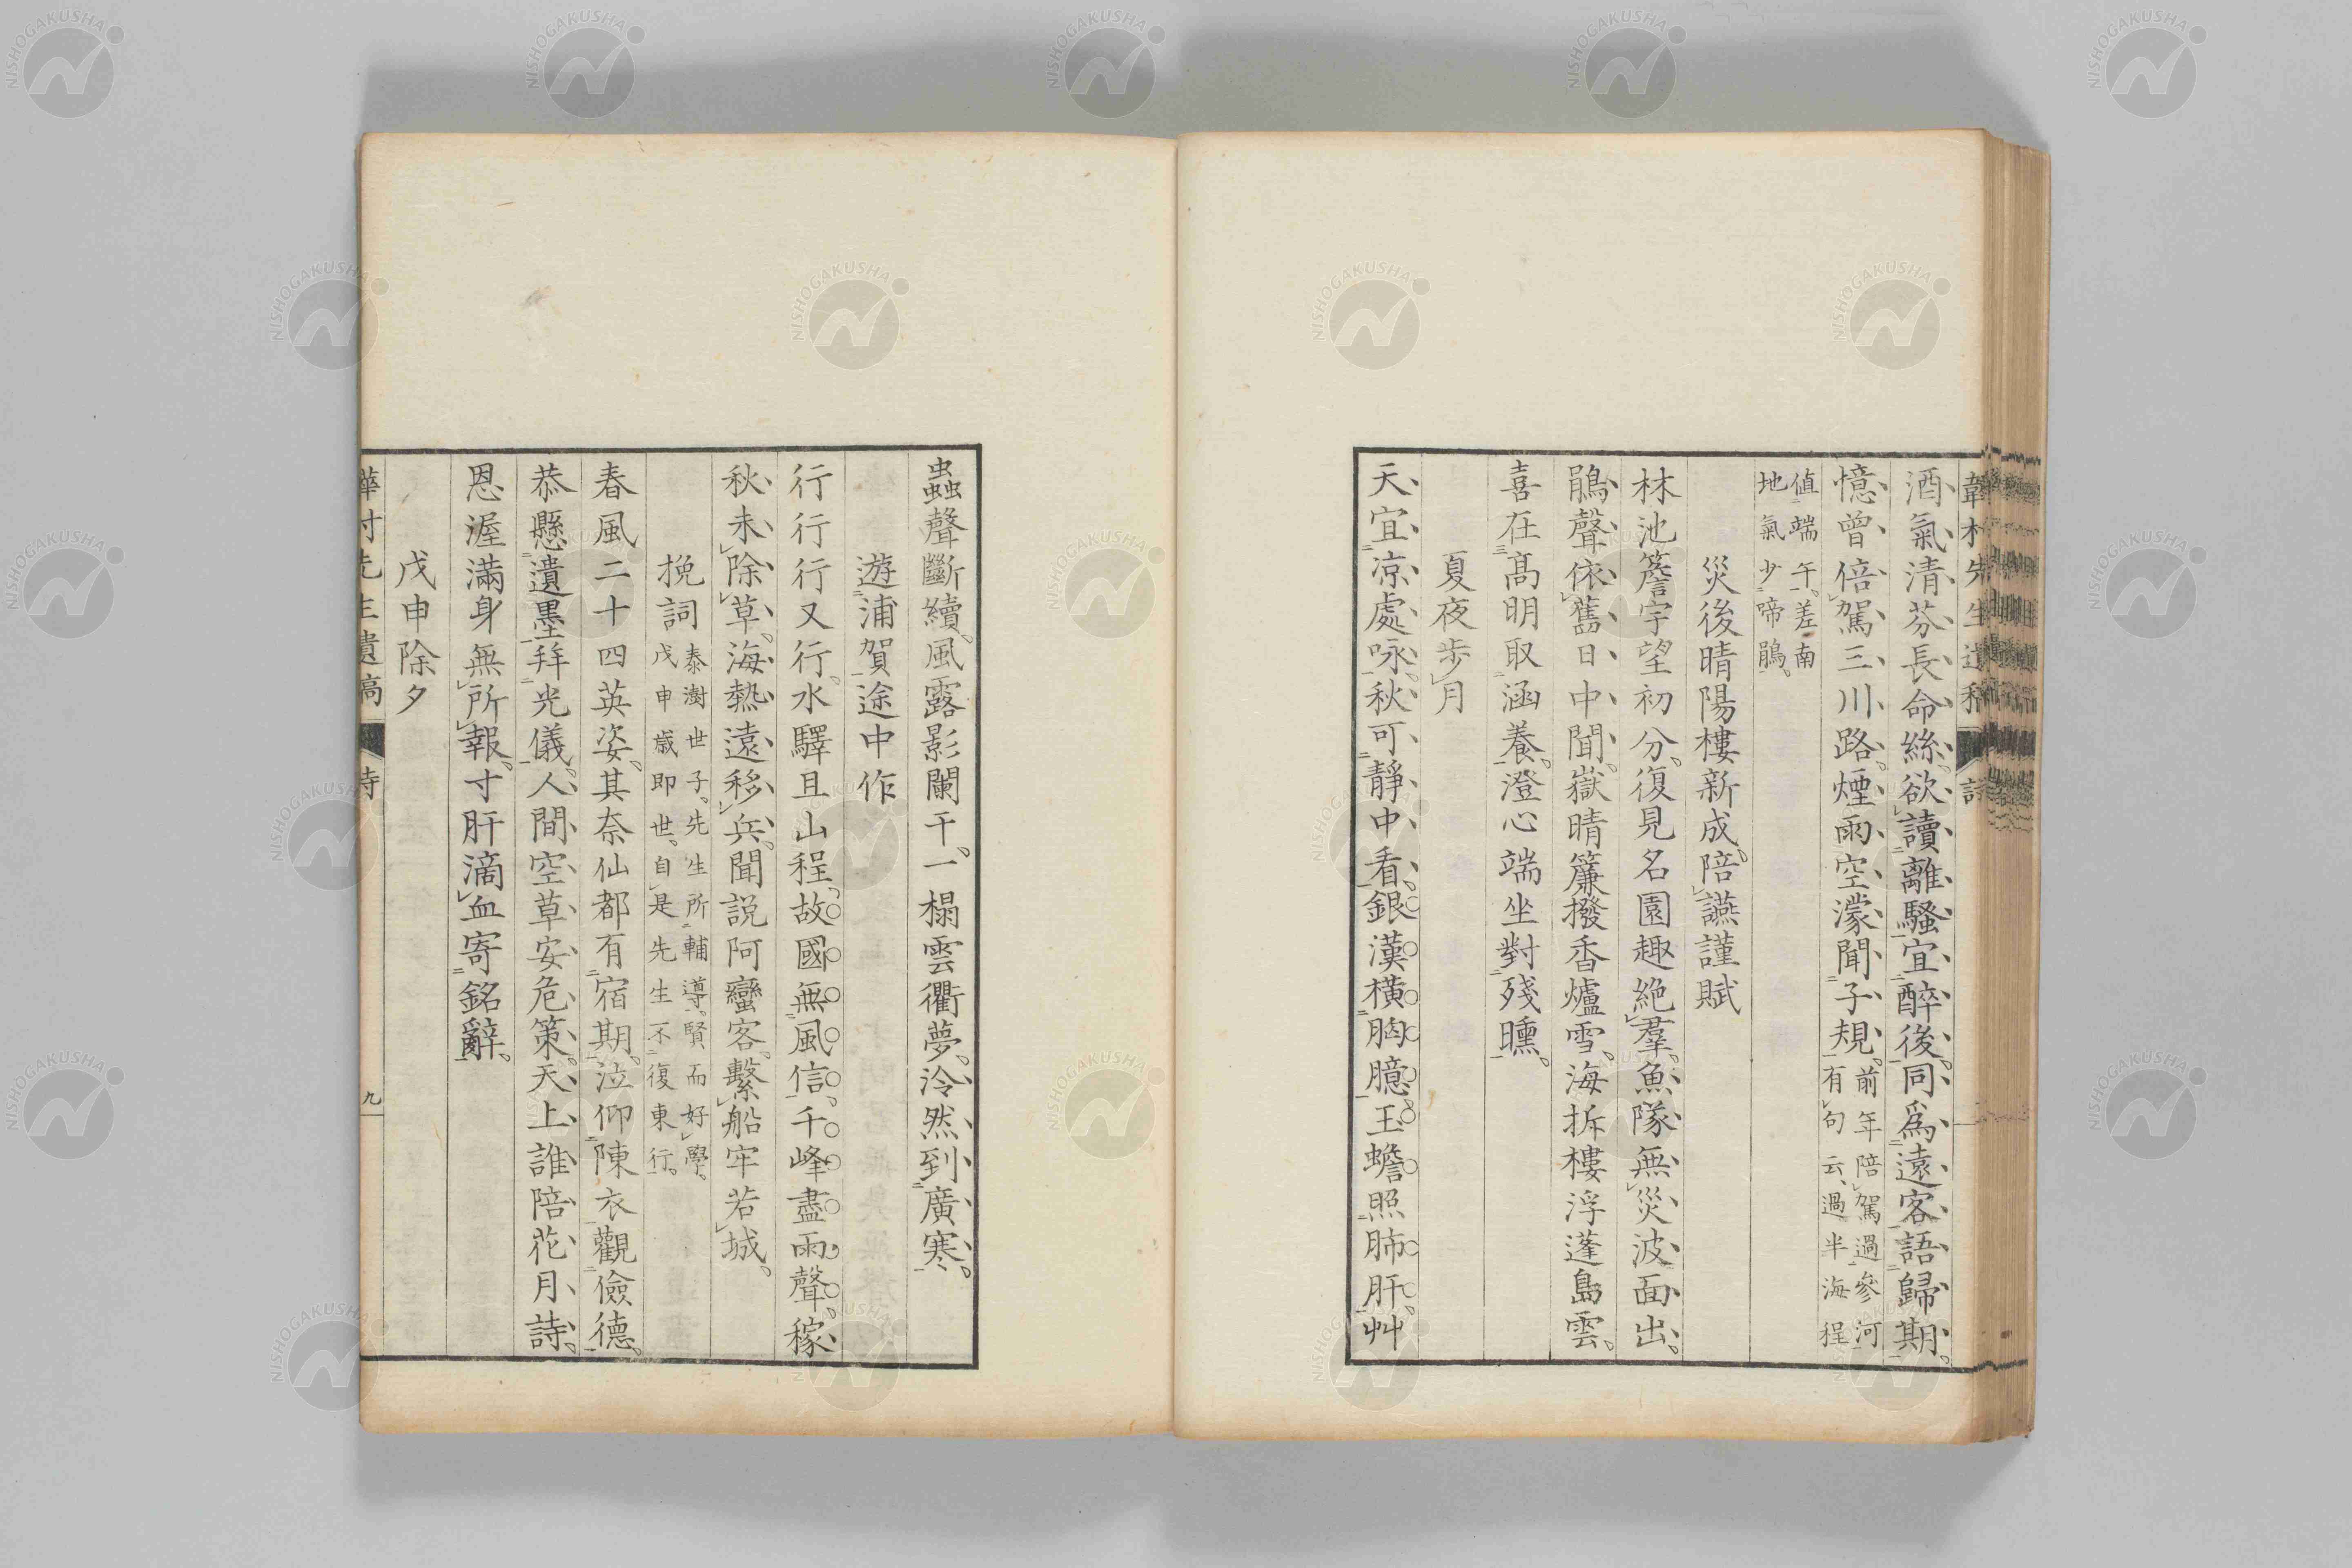 酒氣清芬長命絲欲讀離騷宜醉後同爲遠客語歸期
憶曾倍駕三川路煙雨空濛聞子規前年陪駕過參河
有句云過半海程
値端午差南
地氣少啼鵑
災後晴陽樓新成陪讌謹賦
林池簷宇望初分復見名園趣絶羣魚隊無災波面出
鵑聲依舊日中聞嶽晴簾撥香爐雪海拆樓浮蓬島雲
喜在高明取涵養澄心端坐對殘曛
夏夜步月
天宜凉處咏秋可靜中看銀漢橫胸臆玉蟾照肺肝艸
蟲聲斷續風露影闌干一榻雲衢夢泠然到廣寒
遊浦賀途中作
行行行又行水驛且山程故國無風信千峰盡雨聲稼
秋未除草海熱遠移兵聞説阿蠻客繫船牢若城
挽詞泰澍世子先生所輔導賢而好學
戊申歳即世自是先生不復東行
春風二十四英姿其奈仙都有宿期泣仰陳衣觀儉德
恭懸遺墨拜光儀人間空草安危策天上誰陪花月詩
恩渥滿身無所報寸肝滴血寄銘辭
戊申除夕
先生遺稿
九
NISHOGAKUSHA